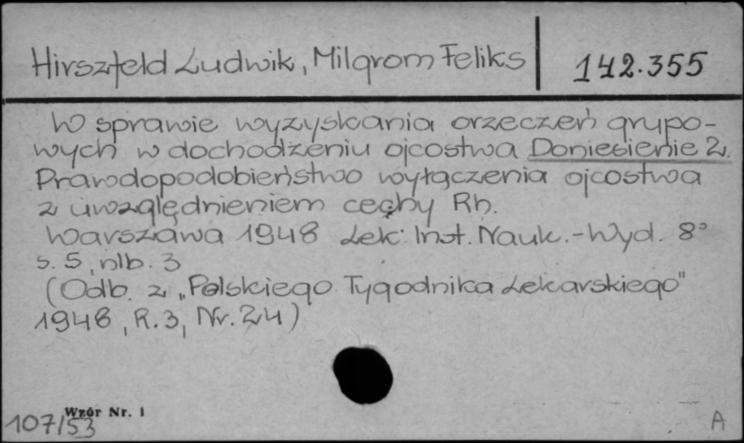 Hirszfeld Ludwik, Milgrom Feliks
142.355
W sprawie wyzyskania orzeczeń grupo-
wych w dochodzeniu ojcostwa Doniesienie 2.
Prawdopodobieństwo wyłączenia ojcostwa
z uwzględnieniem cechy Rh.
Warszawa 1948 Lek. Inst. Nauk.-Wyd. 8°
s. 5, nlb. 3
(Odb. z „Polskiego Tygodnika Lekarskiego"
1948, R. 3, Nr. 24)
Wzór Nr. 1
107/53
A